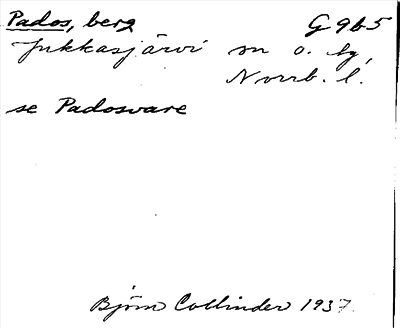 Pados, berg G9b5
Jukkasjärvi sn o. tg,
Norrb. l.
se Padosvare
Björn Collinder 1937.